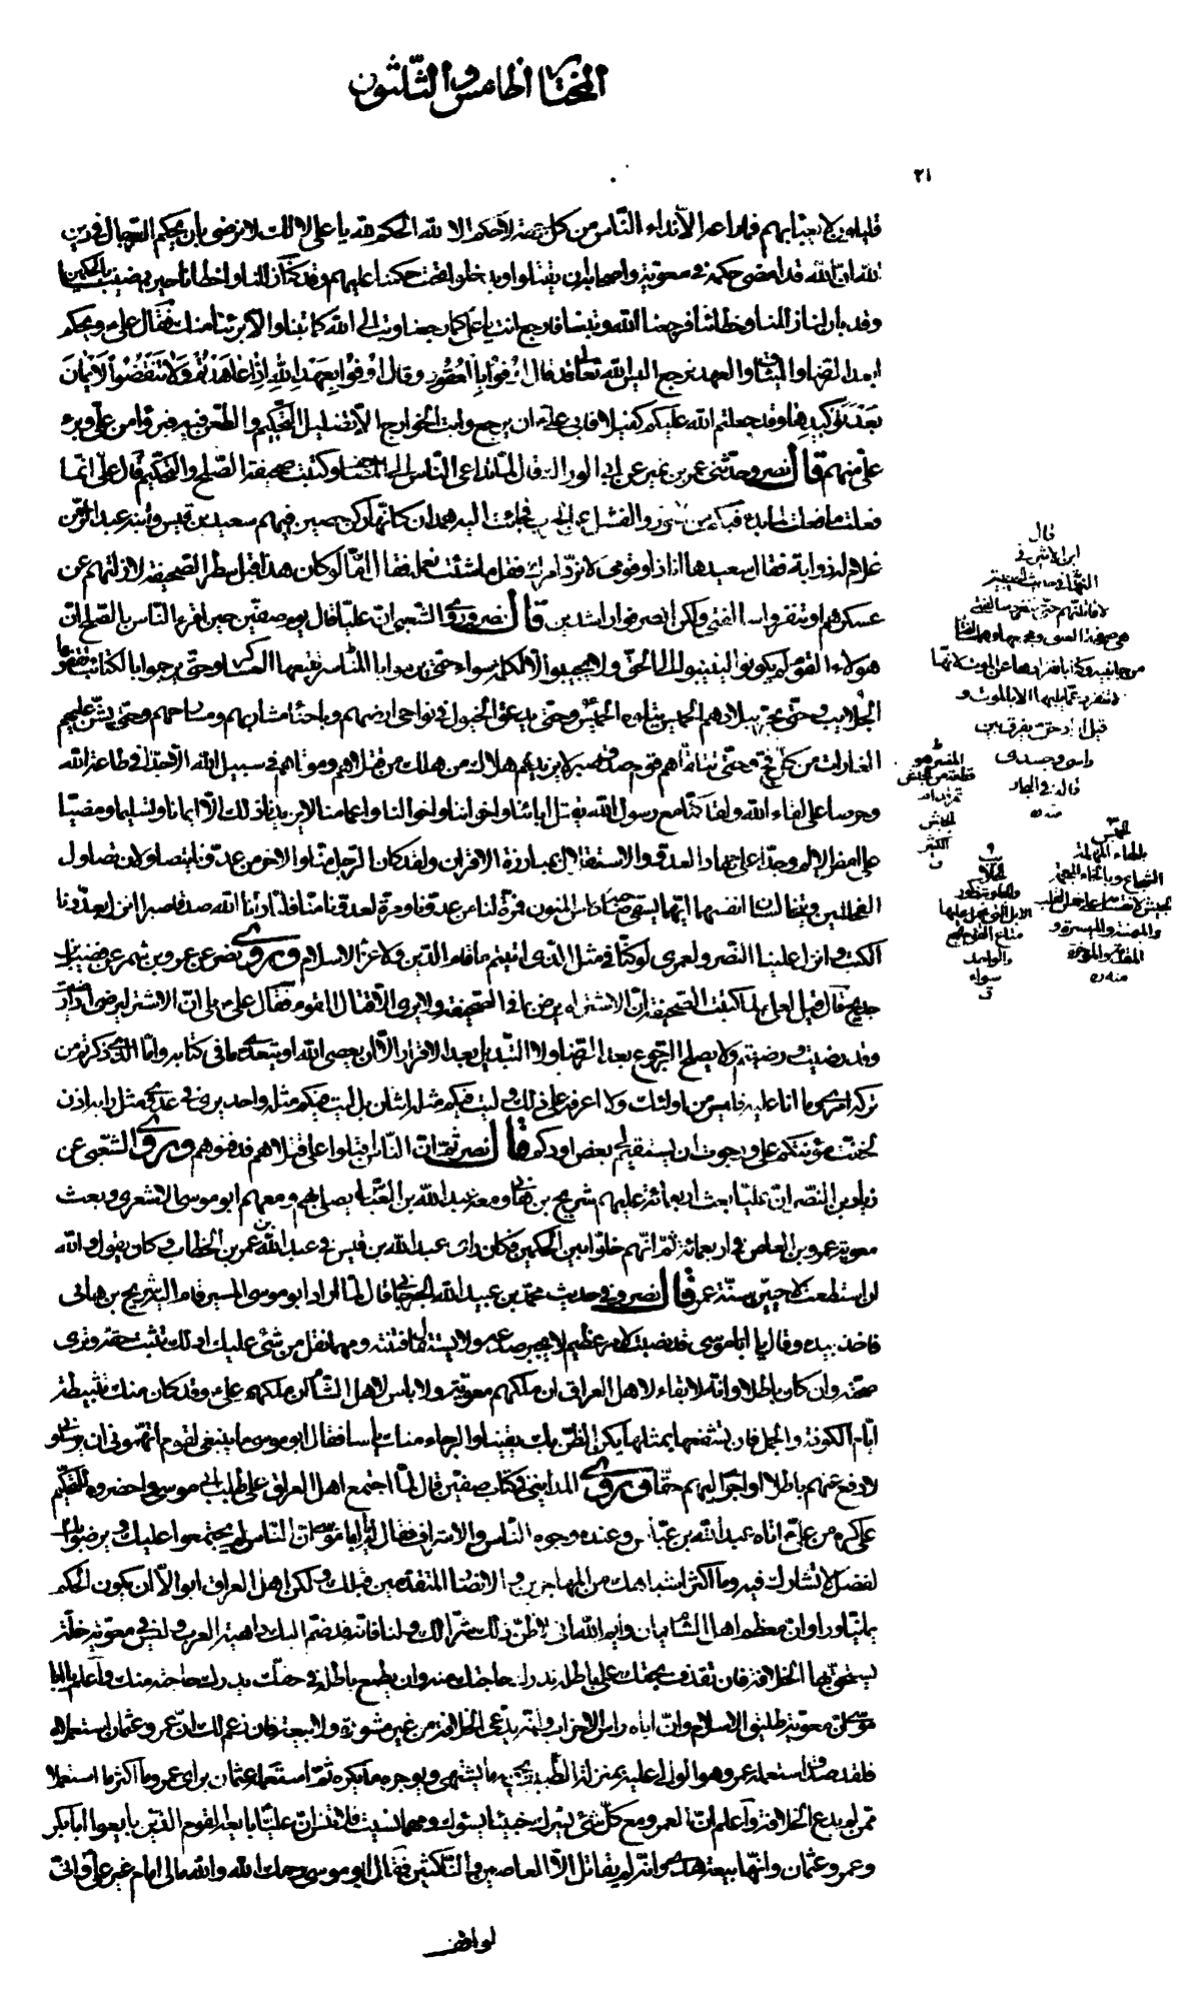 المختار الخامس والثلثون
٢١
الناس من كل جهة لا حكم الا لله الحكم لله يا علي لا لك لا نرضى بان يحكم الرجال في دين
الله ان الله قد امضى حكمه في معوية واصحابه ان يقتلوا او يدخلوا تحت حكمنا عليهم وقد كنا زللنا واخطانا حين رضينا بالحكمين
وقد بان لنا زللنا وخطاؤنا فرجعنا الى الله وتبنا فارجع انت يا علي كما رجعنا وتب الى الله كما تبنا والا برئنا منك فقال علي ويحكم
ابعد الرضا والميثاق والعهد نرجع اليس الله تعالى قد قال اوفوا بالعقود وقال اوفوا بعهد الله اذا عاهدتم ولا تنقضوا الايمان
بعد توكيدها وقد جعلتم الله عليكم كفيلا فابى علي ان يرجع وابت الخوارج الا تضليل التحكيم والطعن فيه فبرؤا من علي وبرء
علي منهم قال نصر وحدثني عمر بن نمير عن ابي الوداك قال لما تداعى الناس الى المصاحف وكتبت صحيفة الصلح والتحكيم قال علي انما
فعلت ما فعلت لما بدا فيكم من الخور والفشل عن الحرب فجائت اليه همدان كانها ركن حصين فيهم سعيد بن قيس وابنه عبد الرحمن
غلام له ذوابة فقال سعيد ها انا ذا وقومي لا نرد امرك فقل ما شئت نعمله فقال اما لو كان هذا قبل سطر الصحيفة لازلتهم عن
عسكرهم او تنفرد سالفتي ولكن انصرفوا راشدين قال نصر وروى الشعبي ان عليا قال يوم صفين حين اقر الناس بالصلح ان
هؤلاء القوم لم يكونوا لينيبوا الى الحق ولا ليجيبوا الى كلمة سواء حتى يرموا بالمناسر تتبعها العساكر وحتى يرجموا بالكتائب تقفوها
الجلايب وحتى يجر ببلادهم الخميس يتلوه الخميس وحتى يدعق الخيول في نواحي ارضهم وباحناء مشاربهم ومسارحهم وحتى يشن عليهم
الغارات من كل فج وحتى تلقاهم قوم صدق صبر لا يزيدهم هلاك من هلك من قتلاهم وموتاهم في سبيل الله الا جدا في طاعة الله
وحرصا على لقاء الله ولقد كنا مع رسول الله يقتل ابائنا واخواننا واخوالنا واعمامنا لا يزيدنا ذلك الا ايمانا وتسليما ومضيا
على امض الالم وجدا على جهاد العدو والاستقلال بمبارزة الاقران ولقد كان الرجل منا والاخر من عدونا يتصاولان تصاول
الفحلين ويتخالسان انفسهما ايهما يسقي صاحبه كاس المنون فمرة لنا من عدونا ومرة لعدونا منا فلما رانا الله صدقا صبرا انزل بعدونا
الكبت وانزل علينا النصر ولعمري لو كنا في مثل الذي اتيتم ما قام الدين ولا عز الاسلام وروى نصر عن عمرو بن شمر عن فضيل بن
خديج قال قيل لعلي لما كتبت الصحيفة ان الاشتر لم يرض بما في الصحيفة ولا يرى الا قتال القوم فقال علي بلى ان الاشتر ليرضى اذا رضيت
وقد رضيت ورضيتم ولا يصلح الرجوع بعد الرضا ولا التبديل بعد الاقرار الا ان يعصى الله او يتعدى ما في كتابه واما الذي ذكرتم من
تركه امري وما انا عليه فليس من اولئك ولا اعرفه على ذلك وليت فيكم مثله اثنان بل ليت فيكم مثله واحد يرى في عدوي مثل رايه اذن
لخفت مؤنتكم علي ورجوت ان يستقيم لي بعض اودكم قال نصر ثم ان الناس اقبلوا على قتلاهم فدفنوهم وروى الشعبي عن
زياد بن النضر ان عليا بعث اربعمائة عليهم شريح بن هاني ومعه عبد الله بن العباس يصلي بهم ومعهم ابو موسى الاشعري وبعث
معوية عمرو بن العاص في اربعمائة ثم انهم خلوا بين الحكمين فكان راى عبد الله بن قيس في عبد الله بن عمر بن الخطاب وكان يقول والله
ان استطعت لاحيين سنة عمر قال نصر وفي حديث محمد بن عبيد الله الجرجاني قال لما اراد ابو موسى المسير قام اليه شريح بن هاني
فاخذ بيده وقال يا ابا موسى قد نصبت لامر عظيم لا يجبر صدعه ولا يستقال فتنته ومهما تقل من شئ عليك او لك تثبت حقه وترى
صحته وان كان باطلا وانه لا بقاء لاهل العراق ان ملكهم معوية ولا باس لاهل الشام ان ملكهم علي وقد كان منك تثبيطة
ايام الكوفة والجمل فان تشفعها بمثلها يكن الظن بك يقينا والرجاء منك ياسا فقال ابو موسى ما ينبغي لقوم اتهموني ان يرسلوني
لادفع عنهم باطلا او اجر اليهم حقا وروى المدايني في كتاب صفين قال لما اجتمع اهل العراق على طلب ابي موسى واحضروه للتحكيم
على كره من علي اتاه عبد الله بن عباس وعنده وجوه الناس والاشراف فقال له يا ابا موسى ان الناس لم يجتمعوا عليك ويرضوا بك
لفضل لا تشارك فيه وما اكثر اشباهك من المهاجرين والانصار المتقدمين قبلك ولكن اهل العراق ابوا الا ان يكون الحكم
يمانيا وراوا ان معظم اهل الشام يمان وايم الله اني لاظن ذلك شرا لك ولنا فانه قد ضم اليك داهية العرب وليس في معوية خلة
يستحق بها الخلافة فان تقذف بحقك على باطله تدرك حاجتك منه وان يطمع باطله في حقك يدرك حاجته منك واعلم يا ابا
موسى ان معوية طليق الاسلام وان اباه راس الاحزاب وانه يدعي الخلافة من غير مشورة ولا بيعة فان زعم لك ان عمر وعثمان استعملاه
فلقد صدق استعمله عمر وهو الوالي عليه بمنزلة الطبيب يحميه ما يشتهي ويوجره ما يكره ثم استعمله عثمان براى عمر وما اكثر ما استعملا
ممن لم يدع الخلافة واعلم ان لعمرو مع كل شئ يسرك خبيئا يسوءك ومهما نسيت فلا تنس ان عليا بايعه القوم الذين بايعوا ابا بكر
وعمر وعثمان وانها بيعة هدى وانه لم يقاتل الا العاصين والناكثين فقال ابو موسى رحمك الله والله مالي امام غير علي واني
لواقف
قال
ابن الاثير في
النهاية في حديث الحديبية
لاقاتلنهم حتى تنفرد سالفتي
هي صفحة العنق وهما سالفتان
من جانبيه وكنى بانفرادها عن الموت لانها
لا تنفرد عما يليها الا بالموت و
قيل اراد حتى يفرق بين
راسي وجسدي
منه ره
المنسر هو
قطعة من الجيش
الجيش
الكثير
ق
الخميس